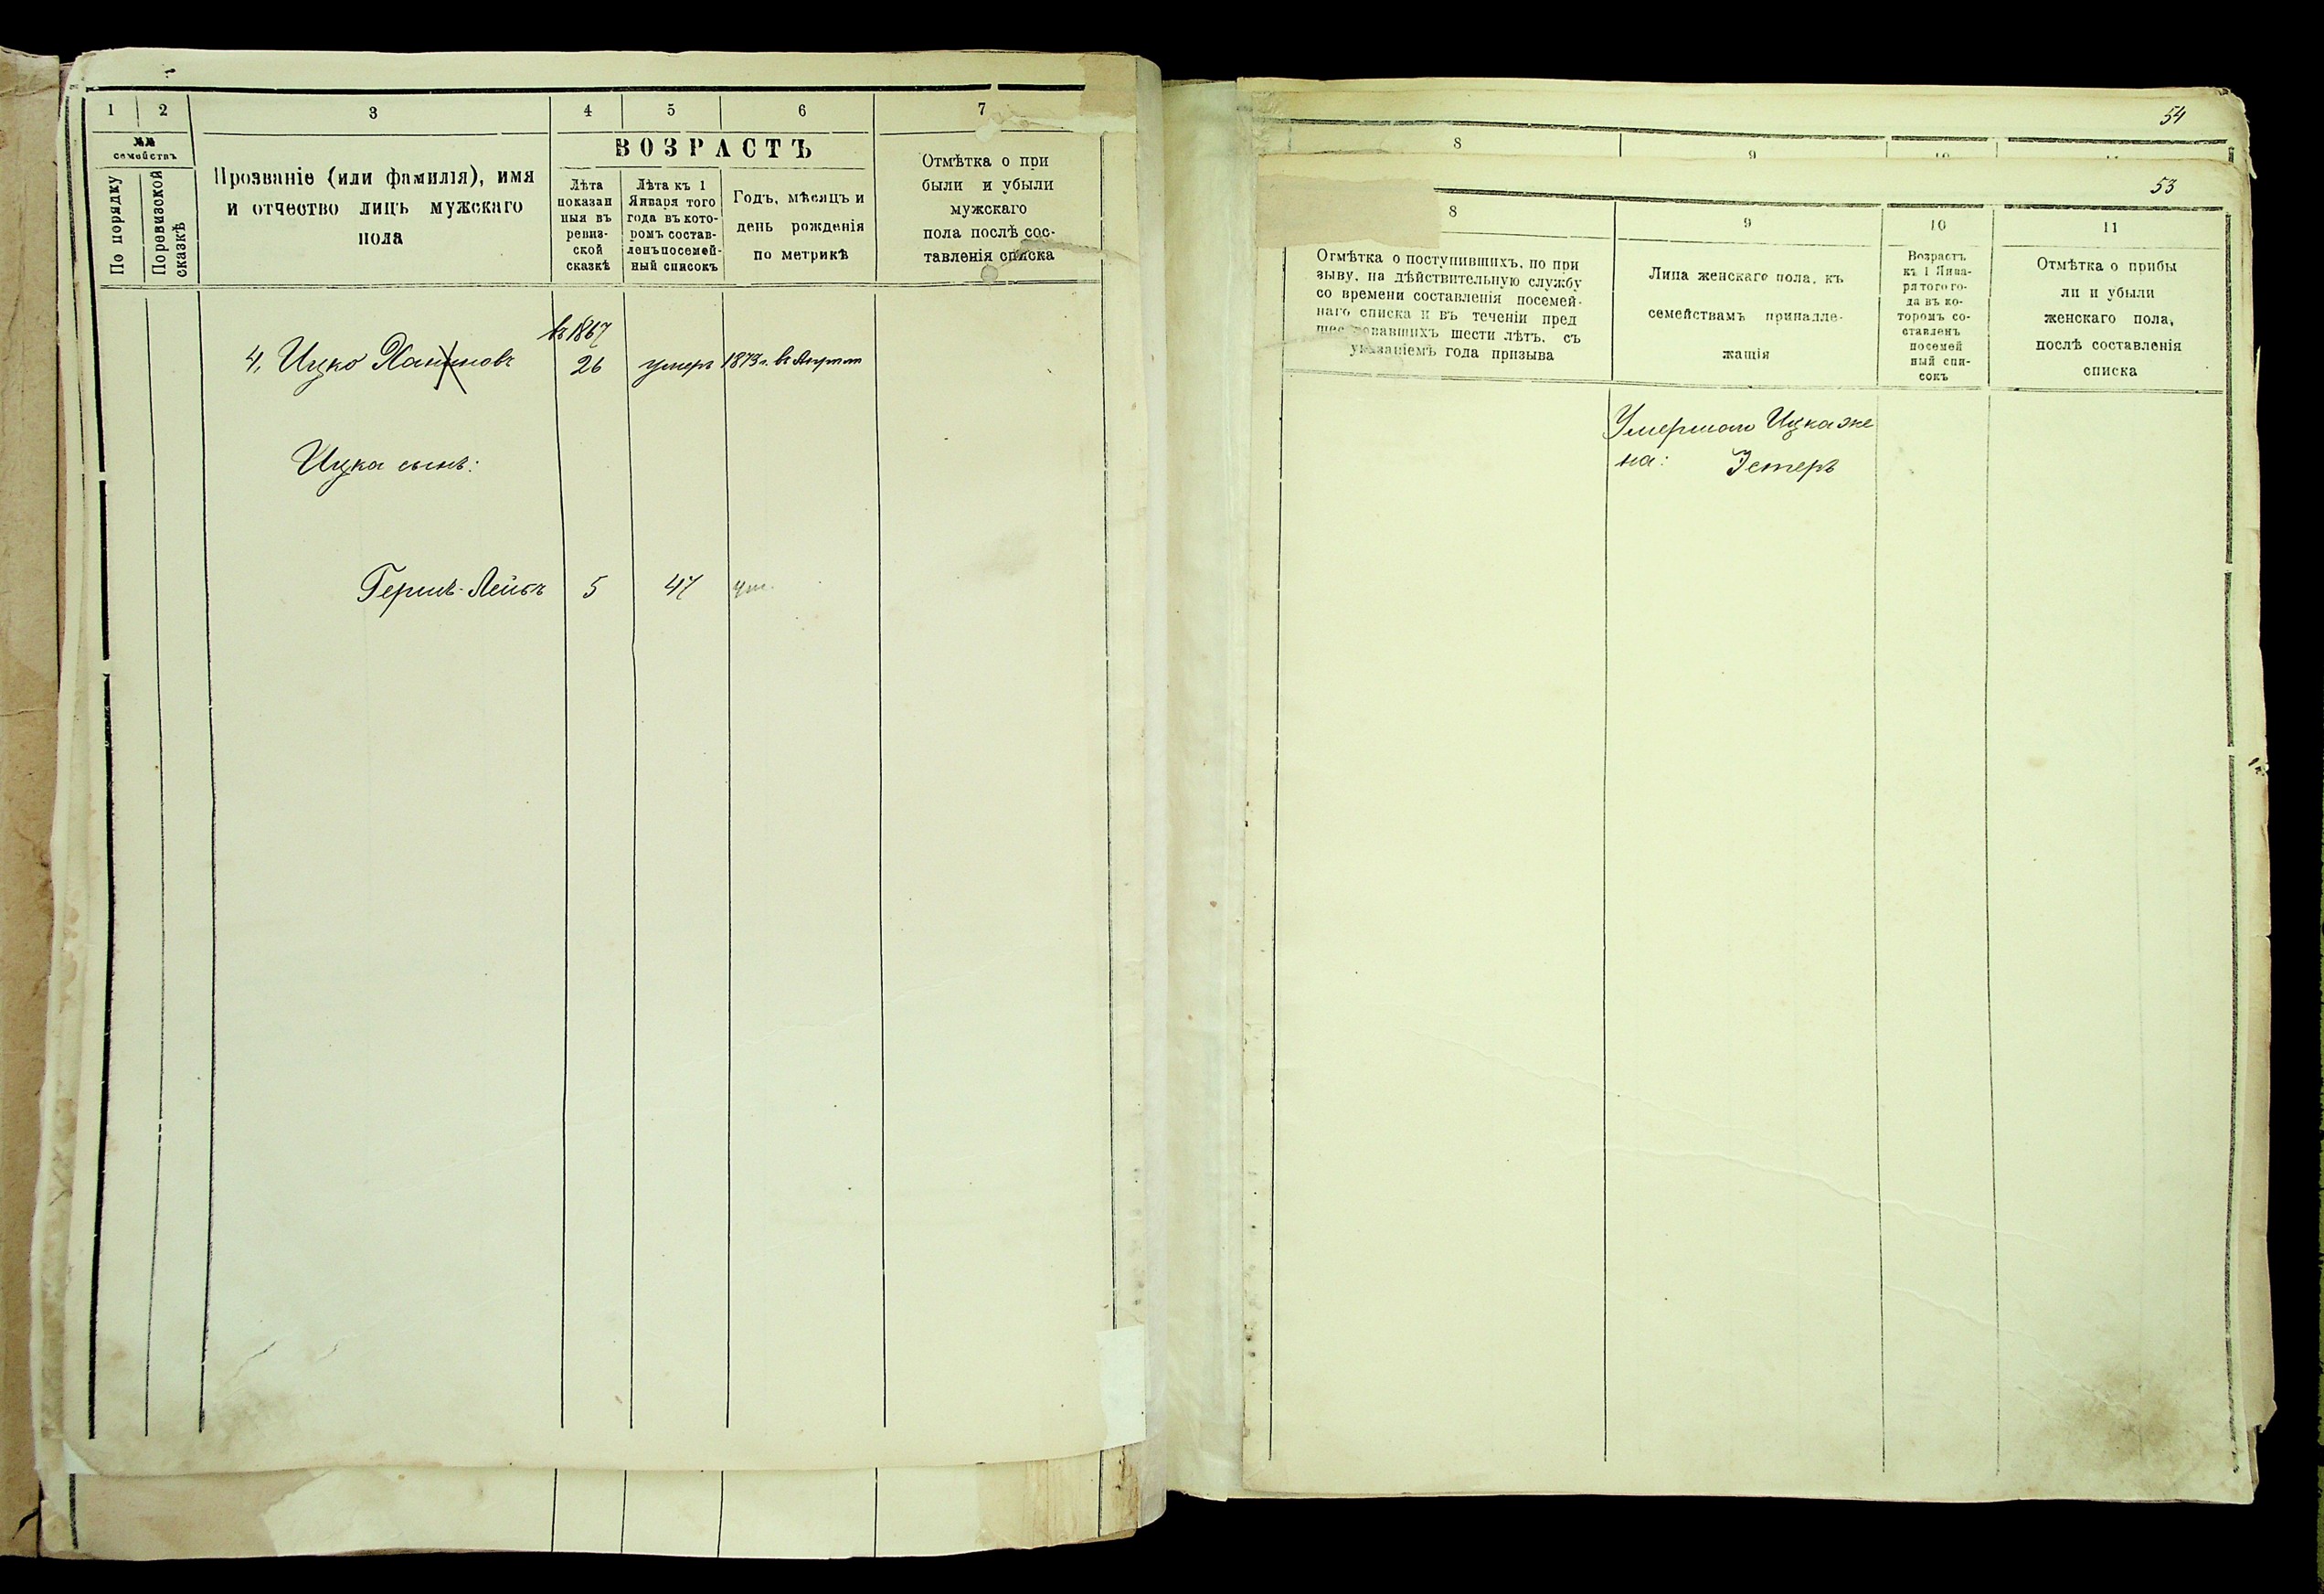 1
2
3
4
5
6
7
№№
семействъ
По порядку
По ревизской
сказкѣ
Прозваніе (или фамилія), имя
и отчество лицъ мужскаго
пола
ВОЗРАСТЪ
Лѣта
показан
ныя въ
ревиз-
ской
сказкѣ
Лѣта къ 1
Января того
года въ кото-
ромъ состав-
ленъ посемей-
ный списокъ
Годъ, мѣсяцъ и
день рожденія
по метрикѣ
Отмѣтка о при
были и убыли
мужскаго
пола послѣ сос-
тавленія списка
въ 1867
4, Ицко 26 умеръ 1873 г. въ
Ицка сынъ:
Гершъ-Лейбъ 5 47 ум.
54
8
9
10
53
8
9
10
11
Отмѣтка о поступившихъ, по при
зыву, на дѣйствительную службу
со времени составленія посемей-
наго списка и въ теченіи пред
шествовавшихъ шести лѣтъ, съ
указаніемъ года призыва
Лица женскаго пола, къ
семействамъ принадле-
жащія
Возрастъ
къ 1 Янва-
ря того го-
да въ ко-
торомъ со-
ставленъ
посемей
ный спи-
сокъ
Отмѣтка о прибы
ли и убыли
женскаго пола,
послѣ составленія
списка
Умершаго Ицка же
на: Эстеръ